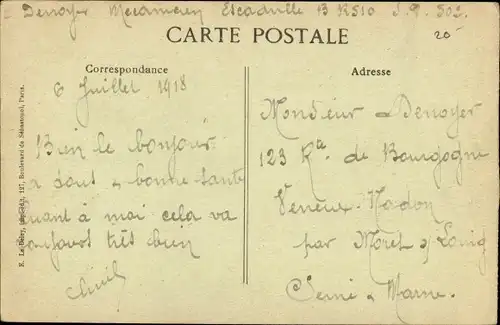 Denoyer Mecanicien Escadrille BR 510 S.P. 502.
20-
CARTE POSTALE
Correspondance
Adresse
6 Juillet 1918
Bien le bonjour
a tous & bonne sante
Quant à moi cela va
toujours très bien
Monsieur Denoyer
123 Rte de Bourgogne
Veneux-Nadon
par Moret s/ Loing
Seine & Marne.
E. Le Deley, 127, Boulevard de Sébastopol, Paris.